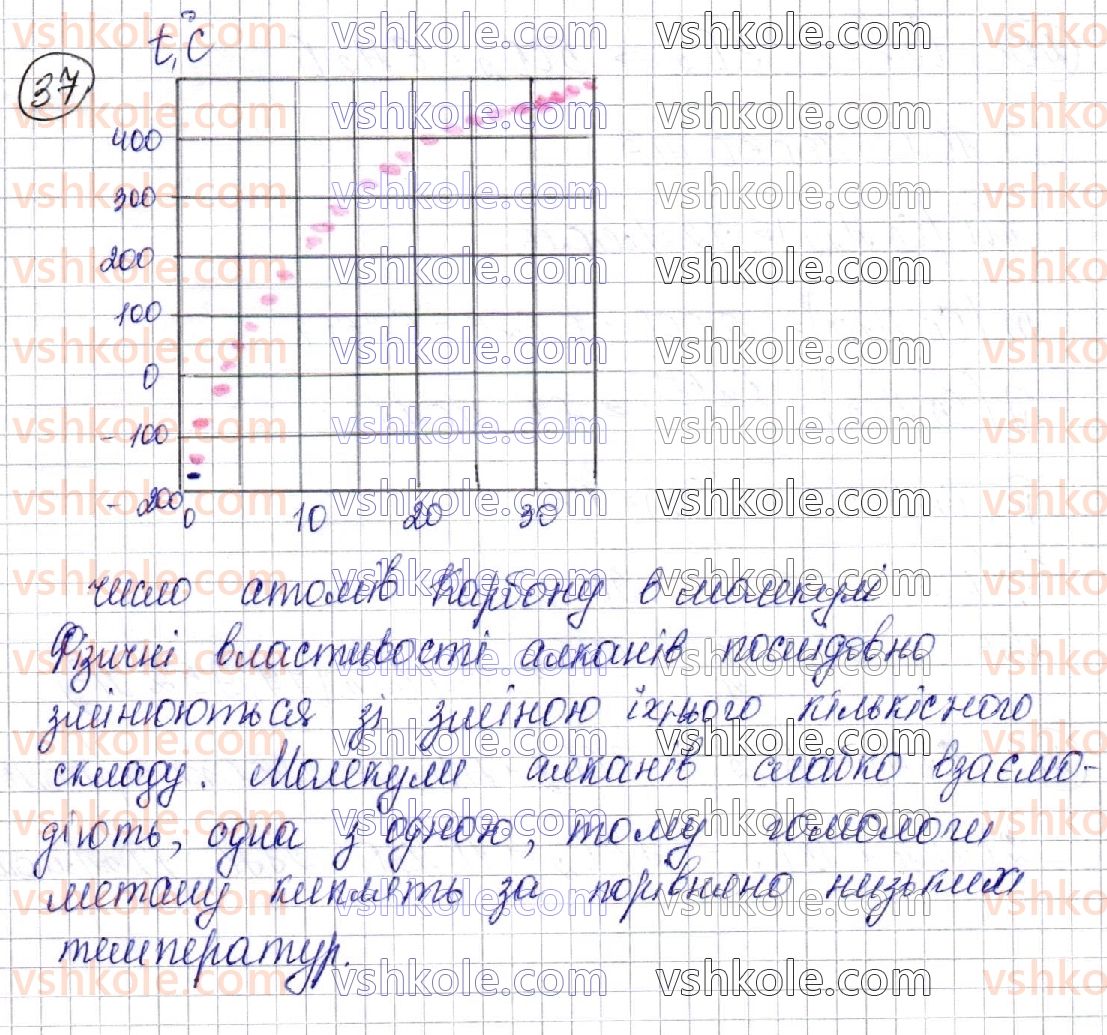 t,°C
37
400
300
200
100
0
-100
-200
0 10 20 30
число атомів Карбону в молекулі
Фізичні властивості алканів послідовно
змінюються зі зміною їхнього кількісного
складу. Молекули алканів слабко взаємо-
діють, одна з одною, тому гомологи
метану киплять за порівняно низьких
температур.
vshkole.com